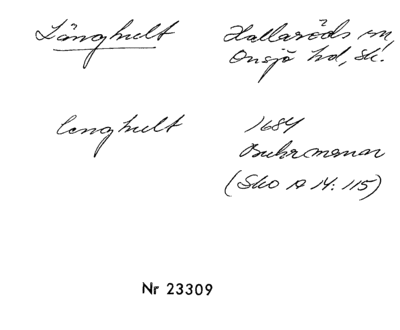 Långhult Hallaröds sn,
Onsjö hd, Sk.
Lenghult 1684
Buhrmann
(Sko A 14:115)
Nr 23309